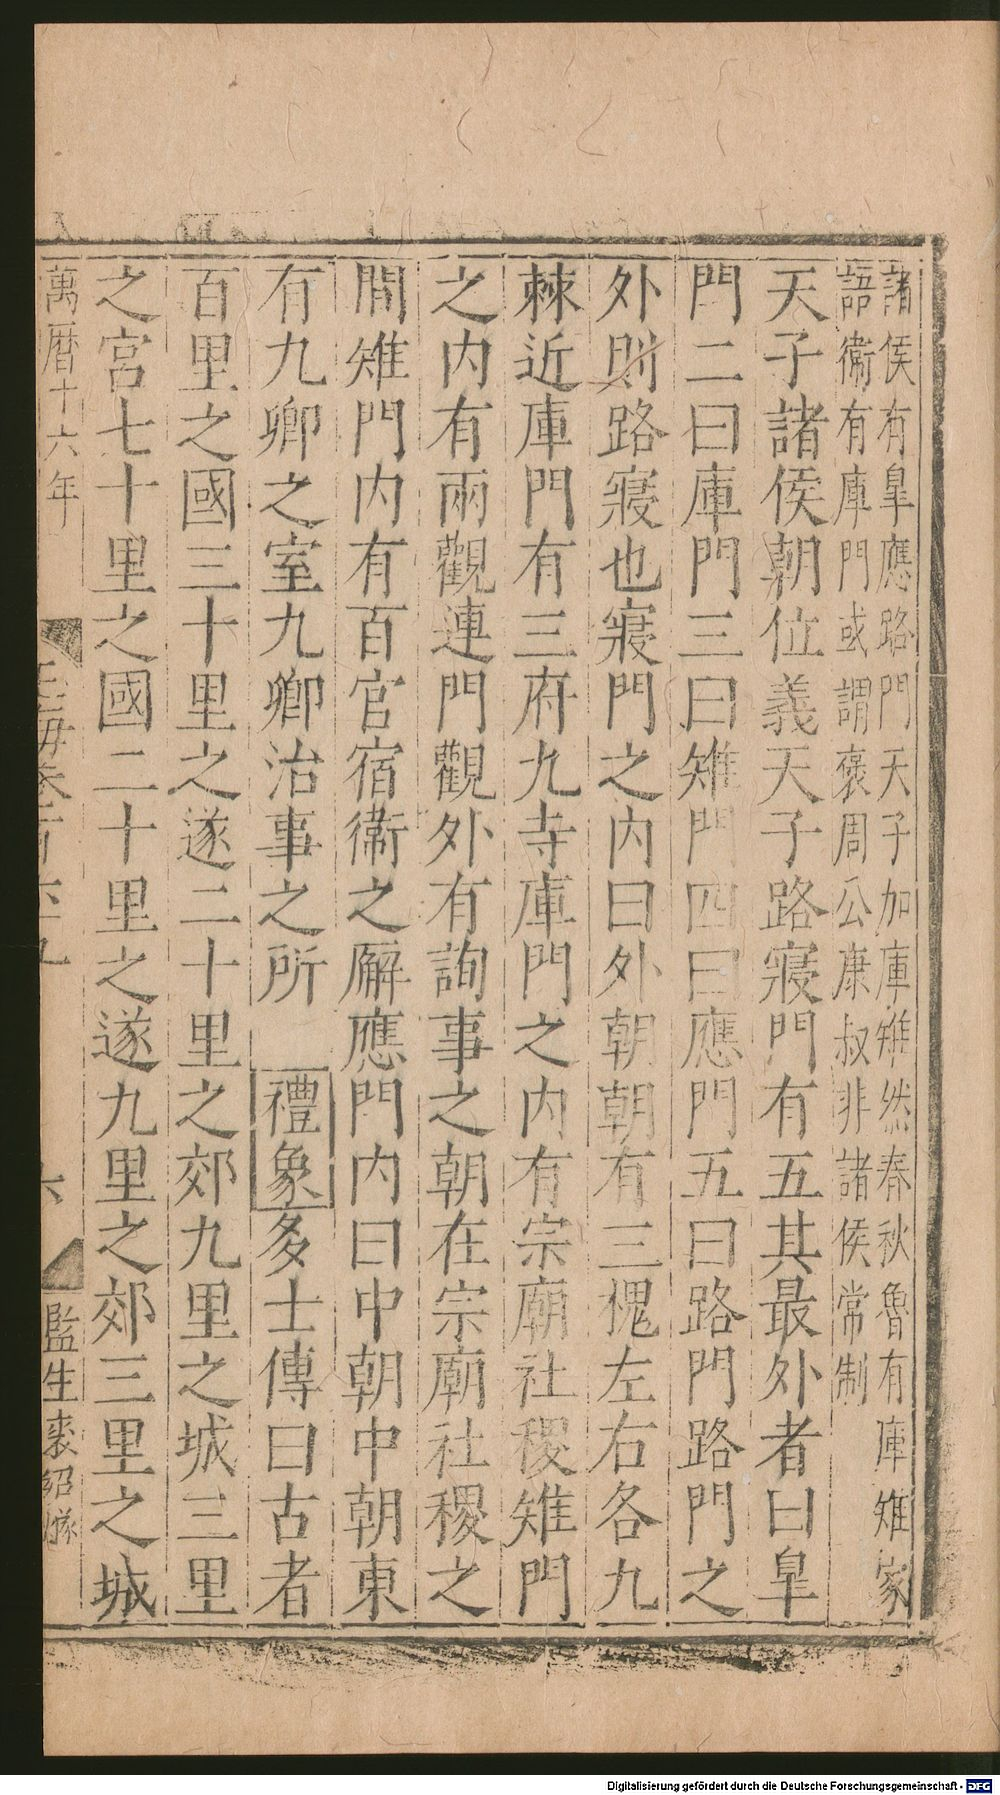 諸侯有臯應路門天子加庫雉然春秋魯有庫雉家
語衞有庫門或謂褒周公康叔非諸侯常制
天子諸侯朝位義天子路寢門有五其最外者曰臯
門二曰庫門三曰雉門四曰應門五曰路門路門之
外則路寢也寢門之內曰外朝朝有三槐左右各九
棘近庫門有三府九寺庫門之內有宗廟社稷雉門
之內有兩觀連門觀外有詢事之朝在宗廟社稷之
間雉門內有百官宿衞之廨應門內曰中朝中朝東
有九卿之室九卿治事之所 禮象多士傳曰古者
百里之國三十里之遂二十里之郊九里之城三里
之宮七十里之國二十里之遂九里之郊三里之城
萬曆十六年 玉海卷 六 監生裘紹
Digitalisierung gefördert durch die Deutsche Forschungsgemeinschaft - DFG